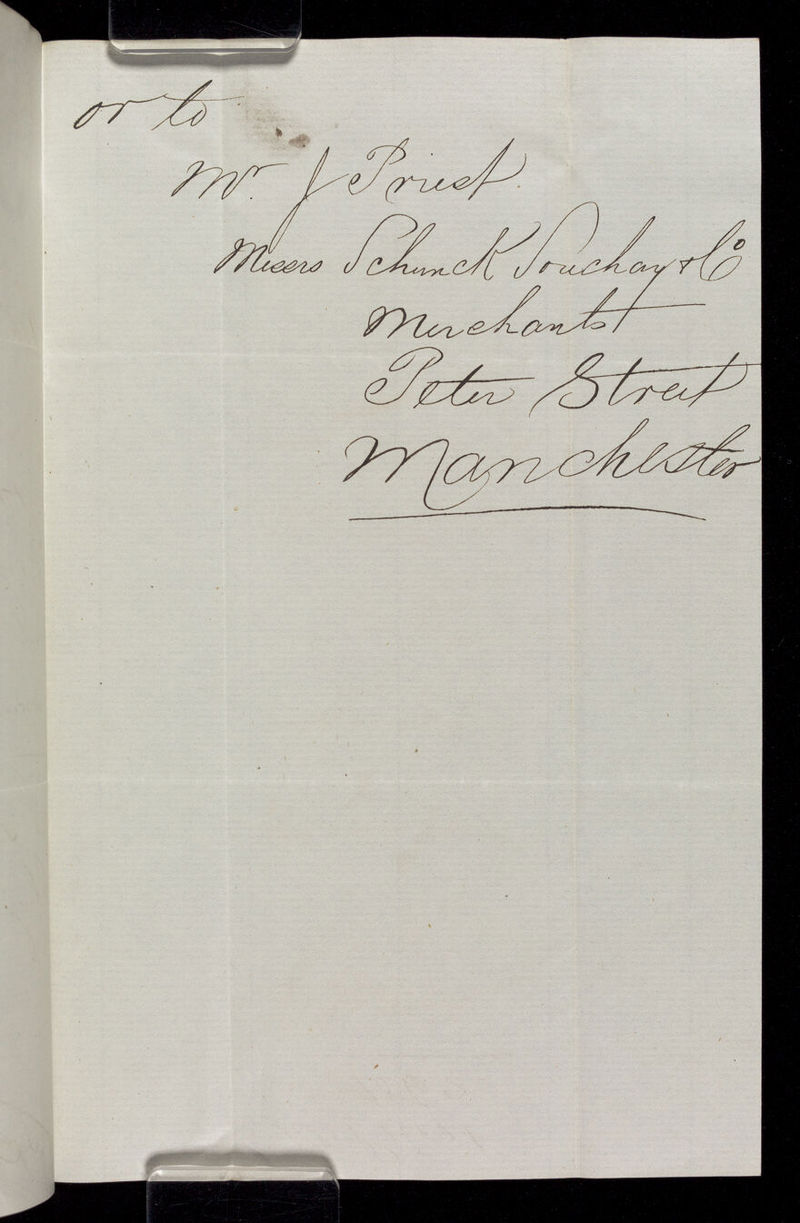 or to
Mr J Priest
Messrs Schunck Souchay & Co
Merchants
Peter Street
Manchester